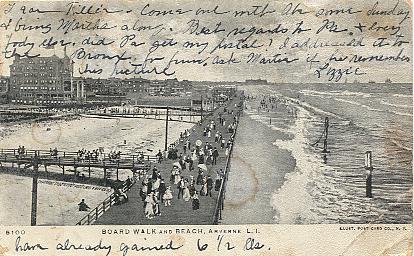 Dear Tillie:- Come out with Al some Sunday
& bring Martha along. Best regards to Pa. & every
body else, did Pa get my postal? I addressed it to
the "Bronx" for fun. Ask Martin if he remembers
this picture
Lizzie
5100 BOARD WALK AND BEACH, ARVERNE L.I. ILLUST. POST CARD CO., N.Y.
have already gained 6 1/2 lbs.